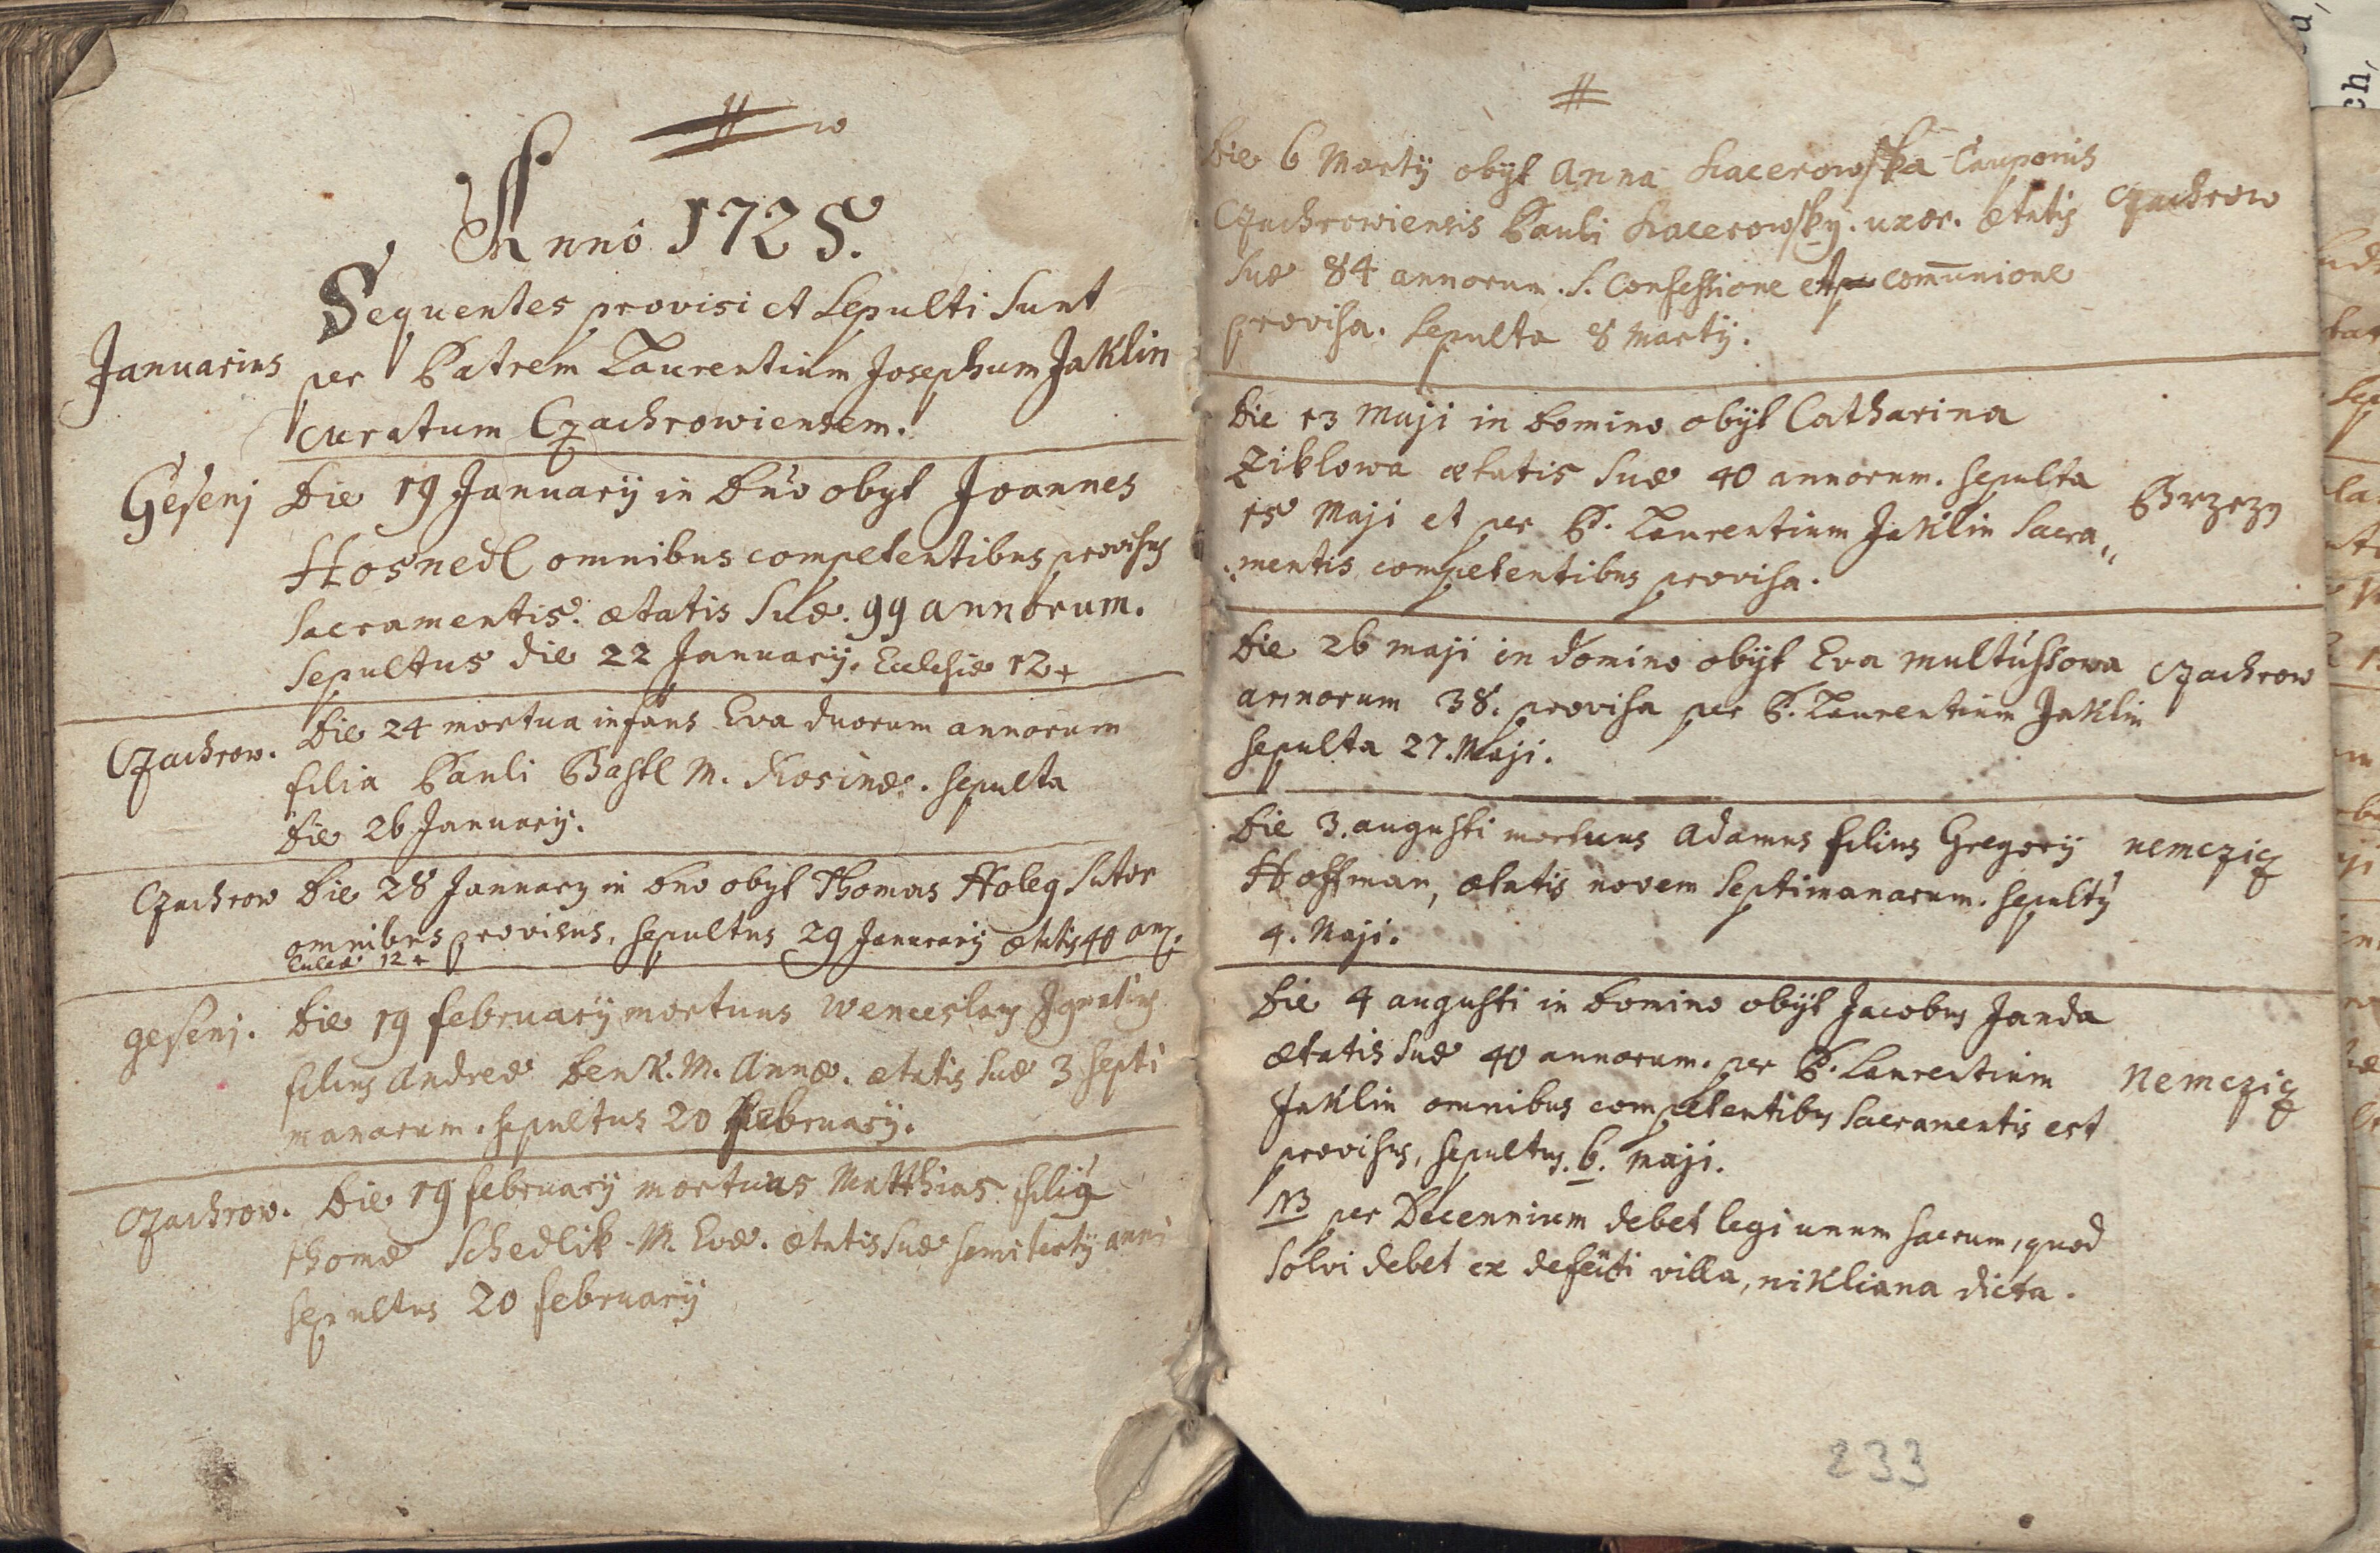 Anno 1725.
Sequentes provisi et Sepulti Sunt
Januarius per Patrem Laurentium Josephum Jaklin
curatum Czachrowiensem.
Gesenj Die 19 Januarij in Dno obijt Joannes
Hosnedl omnibus competentibus provisus
Sacramentis. ætatis Suæ. 99 annorum.
Sepultus die 22 Januarij. Ecclesiæ 12 +
Czachrow. Die 24 mortua infans Eva duorum annorum
filia Pauli Bastl M. Rosinæ. sepulta
Die 26 Januarij.
Czachrow Die 28 Januarij in Dno obijt Thomas Holeg Sutor
omnibus provisus, sepultus 29 Januarij ætatis 40 an.
12 +
gesenj. Die 19 februarij mortuus Wenceslaus Ignatius
filius Andreæ Benk. M. Annæ. ætatis suæ 3 septi
manarum. sepultus 20 februarij.
Czachrow. Die 19 februarij mortuus Matthias filius
thomæ Schedlik M. Evæ. ætatis suæ semitertij anni
sepultus 20 februarij
Die 6 Martij obijt Anna Kacerowska Cauponis
Czachrowiensis Pauli Kacerowsky. uxor. ætatis Czachrow
suæ 84 annorum. S. Confessione et comunione
provisa. Sepulta 8 Martij.
Die 13 Maji in Domino obijt Catharina
Ziklowa ætatis suæ 40 annorum. sepulta
15 Maji et per P. Laurentium Jaklin Sacra" Brzezy
:mentis competentibus provisa.
Die 26 maji in domino obijt Eva multussowa Czachrow
annorum 38. provisa per P. Laurentium Jaklin
sepulta 27. Maji.
Die 3. augusti mortuus Adamus filius Gregorij nemczicz
Hoffman, ætatis novem septimanarum. sepultus
4. Maji.
Die 4 augusti in Domino obijt Jacobus Janda
ætatis suæ 40 annorum. per P. Laurentium Nemczicz
Jaklin omnibus competentibus Sacramentis est
provisus, sepultus. 6. maji.
NB per Decennium debet legi unum sacrum, quod
solvi debet ex defucti villa, nikliana dicta.
233